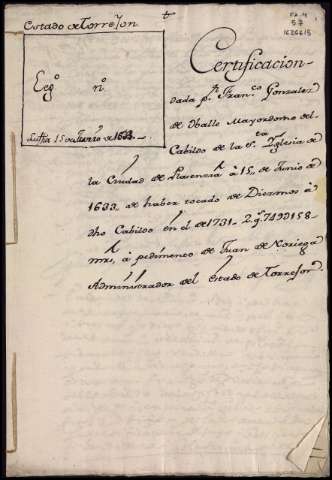 Estado de Torrejon
Leg.º n.º
fecha 15 de Junio de 1633.
Certificacion
dada p.r Fran.co Gonzalez
de Ovalle Mayordomo del
Cabildo de la S.ta Yglesia de
la Ciudad de Plasencia à 15,, de Junio de
1633,, de haber tocado de Diezmos à
dho Cabildo en el de 1731,, 2 q.s 749Ð158,,
mrs, à pedimento de Juan de Noriega
Administrador del Estado de Torrejon.